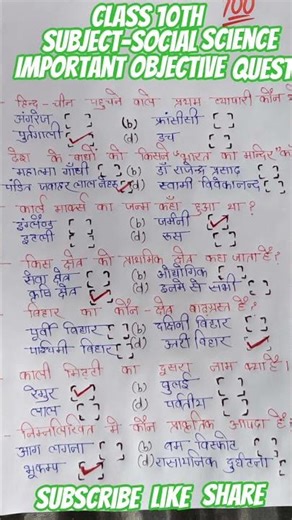 100
CLASS 10TH
SUBJECT-SOCIAL SCIENCE
IMPORTANT OBJECTIVE QUEST
हिन्द-चीन पहुचने वाले प्रथम व्यापारी कौन
अंगरेज (b) फ्रांसीसी
पुर्तगाली (d) डच
देश के बांधो को किसने "भारत का मन्दिर"
महात्मा गाँधी (b) डॉ राजेन्द्र प्रसाद
पंडित जवाहर लाल नेहरू (d) स्वामी विवेकानन्द
कार्ल मार्क्स का जन्म कहाँ हुआ था?
इंग्लैण्ड (b) जर्मनी
इटली (d) रूस
किस क्षेत्र को प्राथमिक क्षेत्र कहा जाता है?
सेवा क्षेत्र (b) औद्योगिक
कृषि क्षेत्र (d) इनमे से सभी
बिहार का कौन-क्षेत्र बाढ़ग्रस्त है?
पूर्वी बिहार (b) दक्षिणी बिहार
पश्चिमी बिहार (d) उत्तरी बिहार
काली मिट्टी का दुसरा नाम क्या है।
रेगुर (b) घुलई
लाल (d) पर्वतीय
निम्नलिखित में कौन प्राकृतिक आपदा है?
आग लगना (b) बम विस्फोट
भूकम्प (d) रासायनिक दुर्घटना
SUBSCRIBE LIKE SHARE